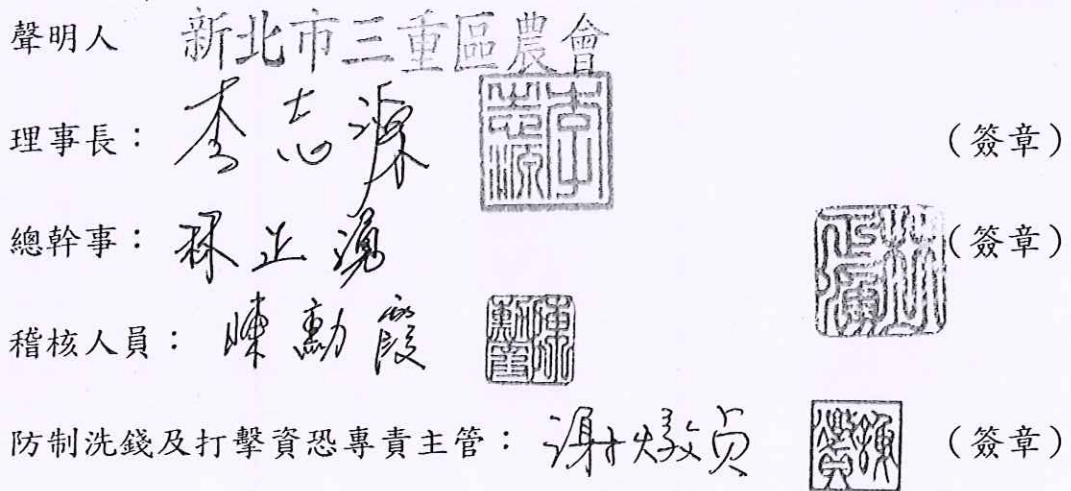 聲明人 新北市三重區農會
理事長：李志源 李志源 （簽章）
總幹事：林正 林正 （簽章）
稽核人員：陳勳霞 陳勳霞
防制洗錢及打擊資恐專責主管：謝燉貞 謝 （簽章）